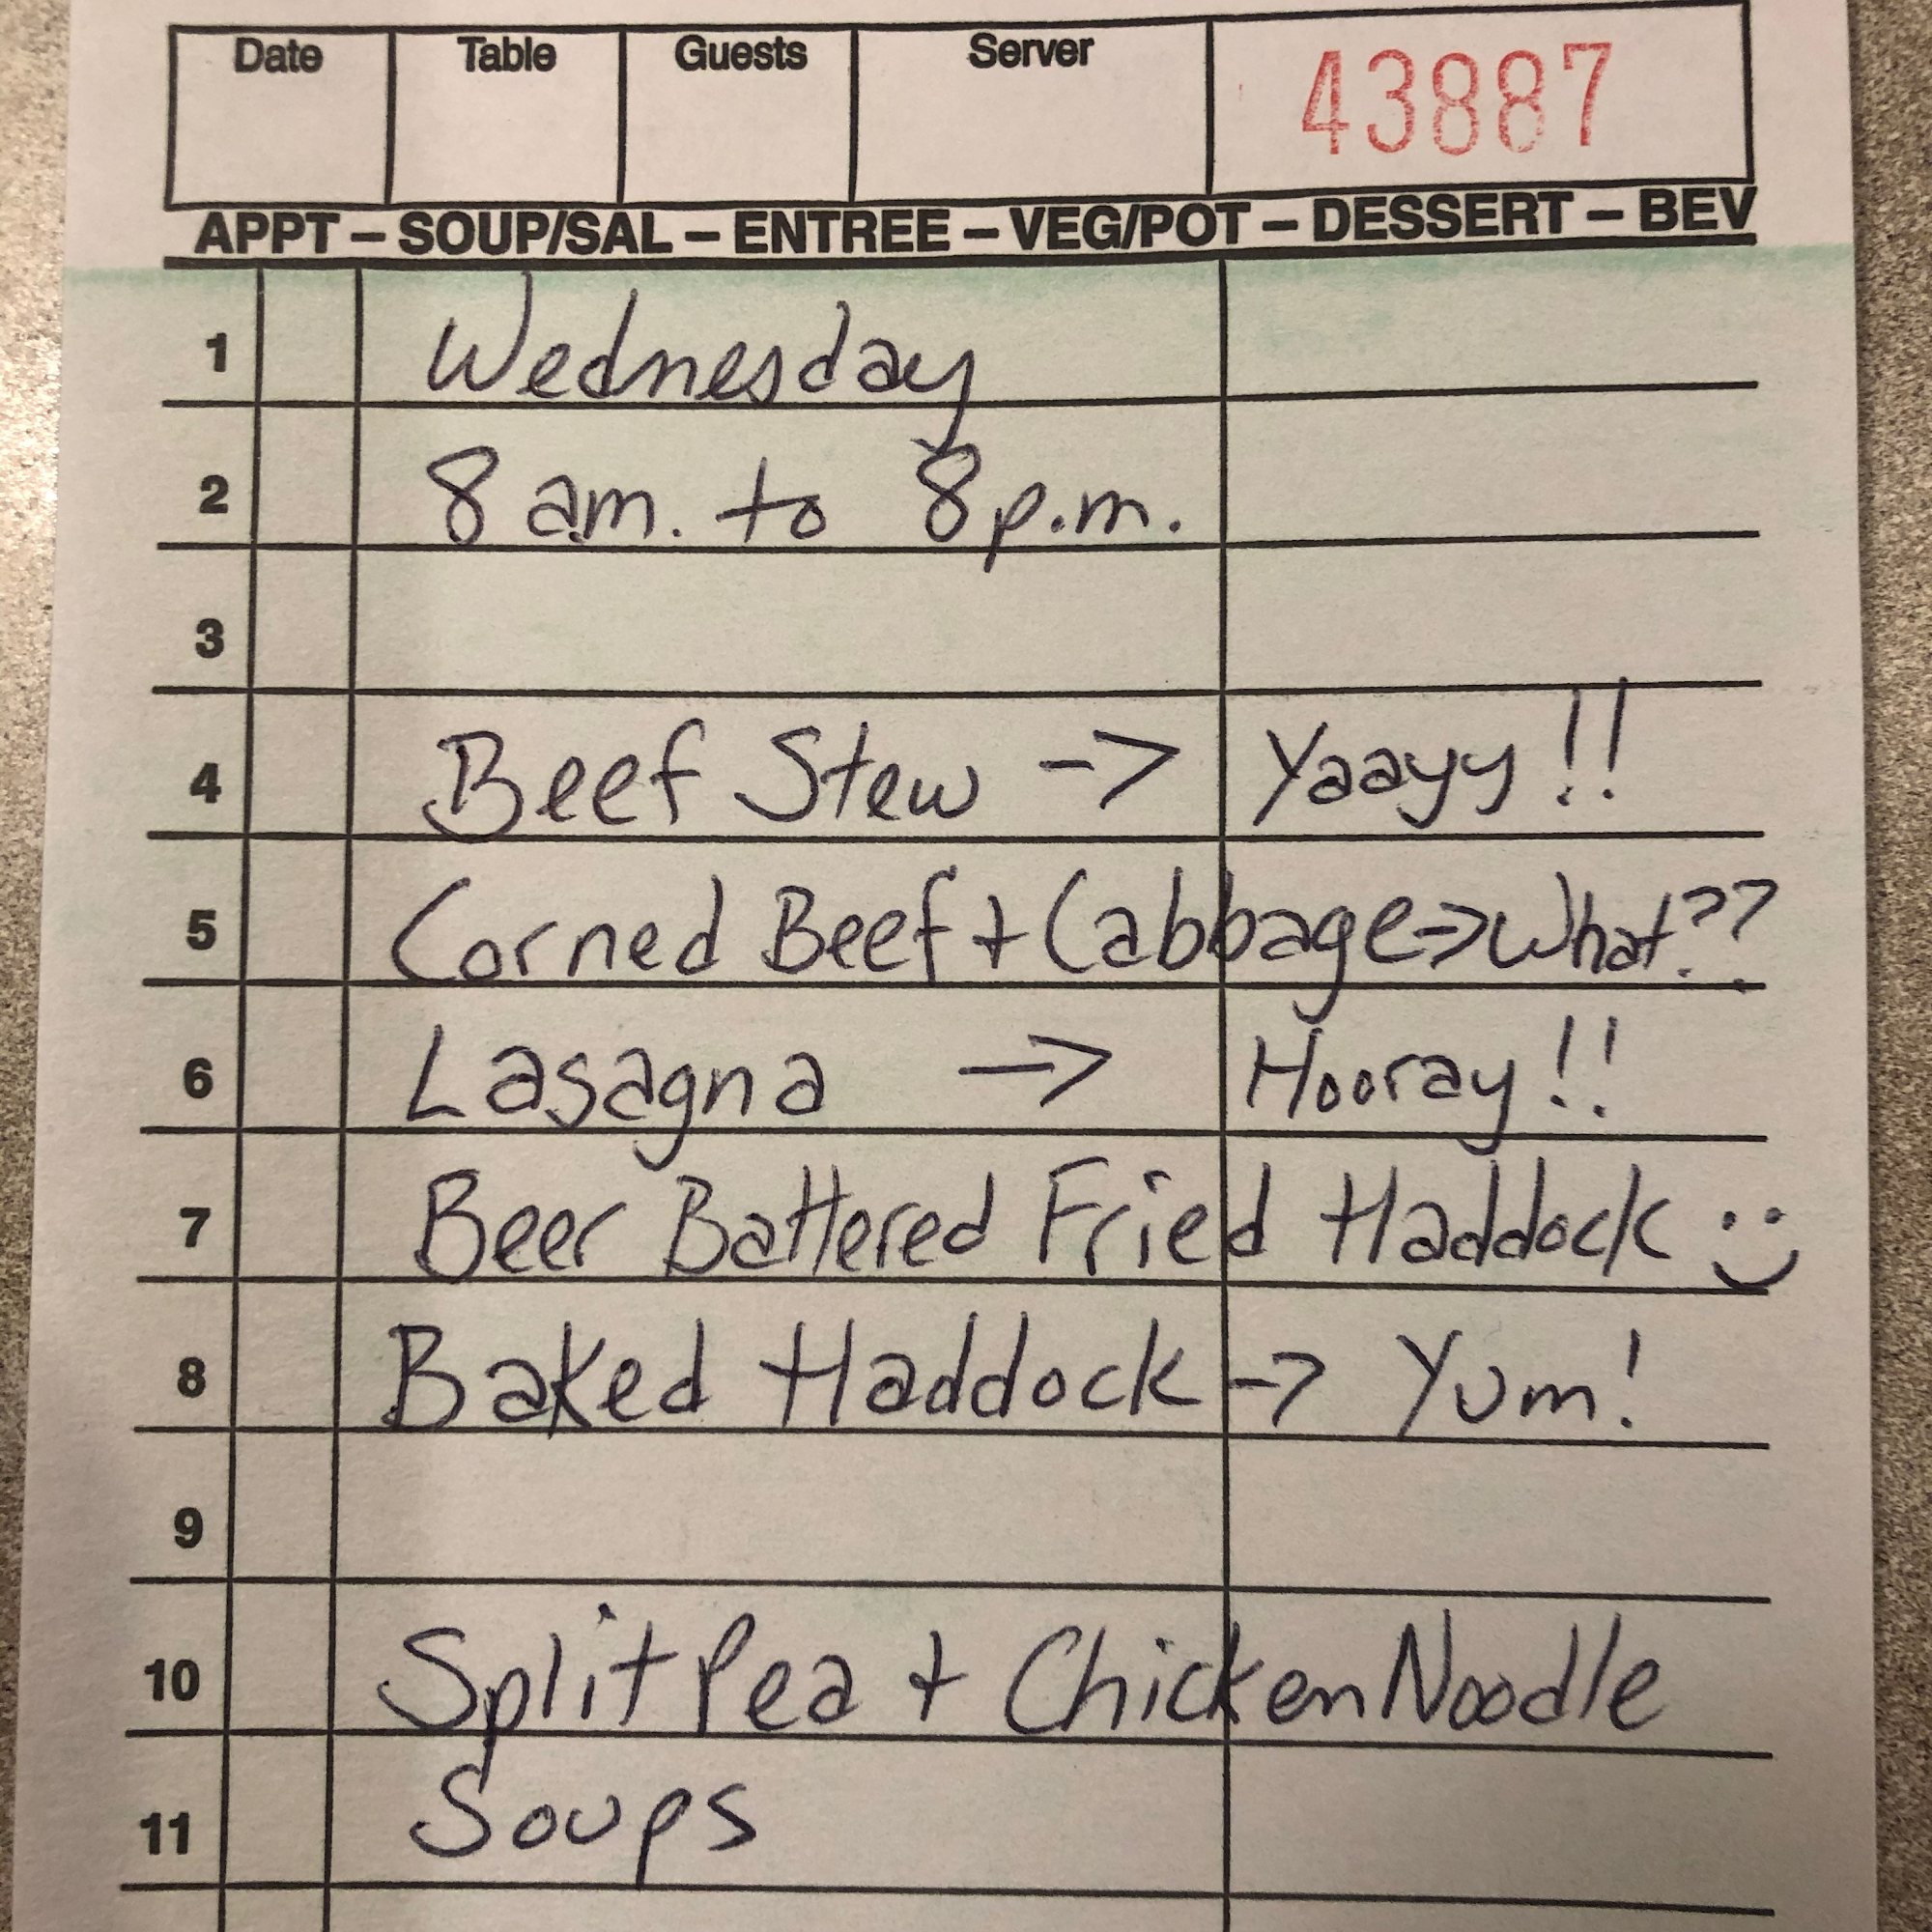 Date Table Guests Server 43887
APPT – SOUP/SAL – ENTREE – VEG/POT – DESSERT – BEV
1 Wednesday
2 8 am. to 8 p.m.
3
4 Beef Stew -> Yaayy!!
5 Corned Beef + Cabbage => What??
6 Lasagna -> Hooray!!
7 Beer Battered Fried Haddock :)
8 Baked Haddock -> Yum!
9
10 Split Pea + Chicken Noodle
11 Soups